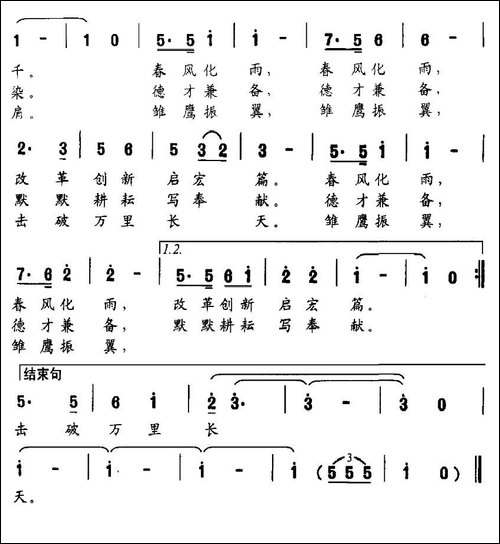 1 - | 1 0 | 5· 5 1 | 1 - | 7· 5 6 | 6 - |
千。 春风化 雨, 春风化 雨,
染。 德才兼 备, 德才兼 备,
肩。 雏鹰振 翼, 雏鹰振 翼,
2· 3 | 5 6 | 5 3 2 | 3 - | 5· 5 1 | 1 - |
改 革 创 新 启 宏 篇。 春风化 雨,
默 默 耕 耘 写 奉 献。 德才兼 备,
击 破 万 里 长 天。 雏鹰振 翼,
1.2.
7· 6 2 | 2 - | 5· 5 6 1 | 2 2 | 1 - | 1 0 :||
春风化 雨, 改革创新 启宏 篇。
德才兼 备, 默默耕耘 写奉 献。
雏鹰振 翼,
结束句
5· 5 | 6 1 | 2 3· | 3 - | 3 0 |
击 破 万 里 长
1 - | 1 - | 1 - | 1 - 1 (5 5 5 | 1 0) ||
3
天。